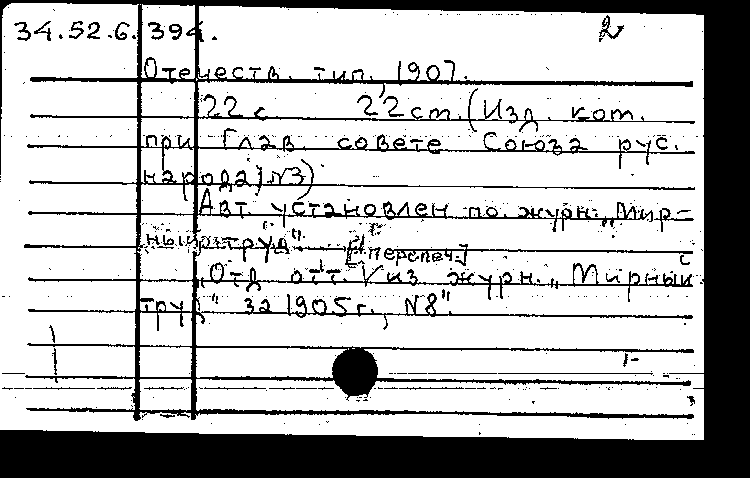 34.52.6.394. 2
Отечеств. тип., 1907.
22 с 22 cm. (Изд. кот.
при Глав. совете Союза рус.
народа) N3)
Авт. установлен по журн. „Мир-
ный труд".
[перепеч.]
„Отд. отт. из журн. „Мирный
труд" за 1905 г., N8".